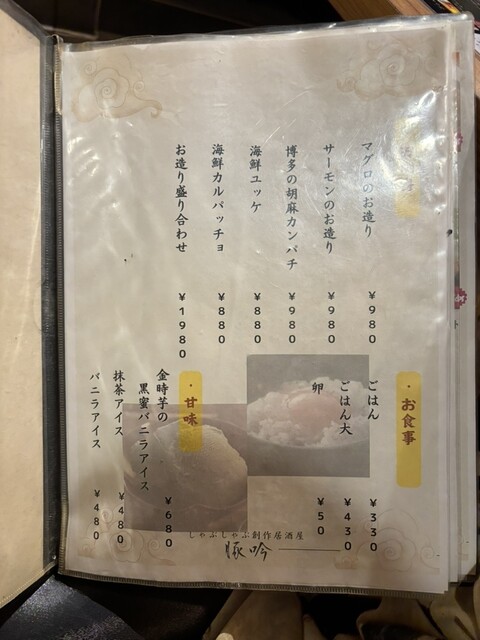 マグロのお造り ¥980
サーモンのお造り ¥980
博多の胡麻カンパチ ¥980
海鮮ユッケ ¥880
海鮮カルパッチョ ¥880
お造り盛り合わせ ¥1980
・お食事
ごはん ¥330
ごはん大 ¥430
卵 ¥50
・甘味
金時芋の
黒蜜バニラアイス ¥680
抹茶アイス ¥480
バニラアイス ¥480
しゃぶしゃぶ創作居酒屋
豚吟